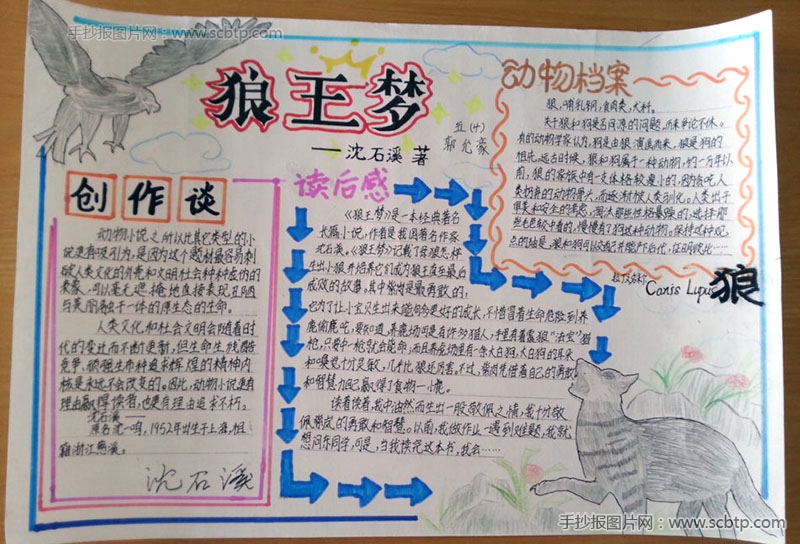 手抄报图片网：www.scbtp.com
狼王梦
——沈石溪 著
五(4)
郭允豪
创作谈
动物小说之所以比其它类型的小
说更有吸引力，是因为这个题材最容易刺
破人类文化的外壳和文明社会种种虚伪的
表象，可以毫无遮掩地直接表现丑陋
与美丽融于一体的原生态的生命。
人类文化和社会文明会随着时
代的变迁而不断更新，但生命生残酷
竞争、顽强生存和追求辉煌的精神内
核是永远不会改变的。因此，动物小说更有
理由赢得读者，也更有理由追求不朽。
沈石溪——
原名沈一鸣，1952年出生于上海，祖
籍浙江慈溪。
沈石溪
读后感
《狼王梦》是一本经典著名
长篇小说，作者是我国著名作家
沈石溪。《狼王梦》记载了母狼怎样
生出小狼并培养它们成为狼王直至最后
成败的故事，其中紫岚是最勇敢的，
它为了让小宝贝生出来能向令更好的成长，不惜冒着生命危险到养
鹿场偷鹿吃，要知道，养鹿场可是有许多猎人，手里有着震狼“法宝”猎
枪，只要中一枪就会毙命；而且养鹿场里有一条大白狗，大白狗的耳朵
和嗅觉十分灵敏，几乎比狼还厉害。不过，紫岚凭借着自己的勇敢
和智慧为自己赢得了食物一小鹿。
读着读着，我中油然而生出一股敬佩之情，我十分敬
佩紫岚的勇敢和智慧。以前，我做作业一遇到难题，我就
想问东问学，可是，当我读完这本书，我会……
动物档案
狼，哺乳钢，食肉类，犬科。
关于狼和狗是否同源的问题，历来争论不休。
有的动物学家认为，狗是由狼演进而来，狼是狗的
祖先。远古时候，狼和狗属一种动物，约一万年以
前，狼的家族中有一支体格较瘦小的，因贪吃人
类扔弃的动物骨头，而逐渐被人类驯化。人类出于
狼和狗可以交配并能产后代，证明彼此……
拉丁文标: Canis Lupus 狼
手抄报图片网：www.scbtp.com